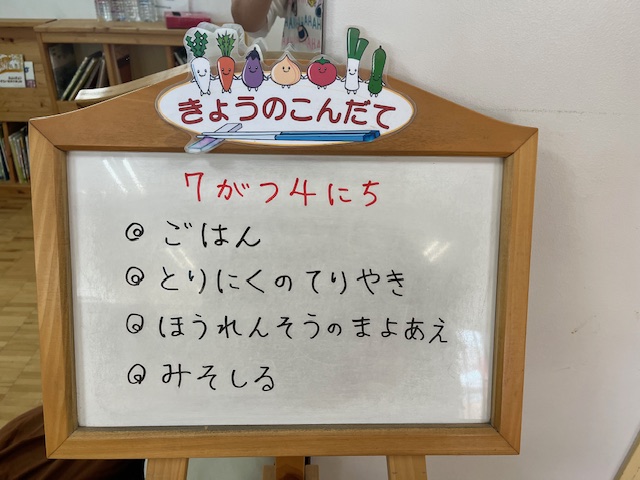 きょうのこんだて
7がつ4にち
◎ ごはん
◎ とりにくのてりやき
◎ ほうれんそうのまよあえ
◎ みそしる